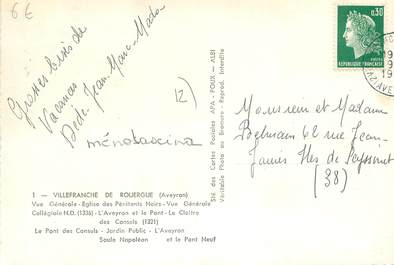 6€
Grosses bises de
Vacances
Dédé. Jean-Marc. Mado
12)
ménotaxina
1 — VILLEFRANCHE DE ROUERGUE (Aveyron)
Vue Générale - Eglise des Pénitents Noirs - Vue Générale
Collégiale N.D. (1336) - L'Aveyron et le Pont - Le Cloître
des Consuls (1321)
Le Pont des Consuls - Jardin Public - L'Aveyron
Saule Napoléon et le Pont Neuf
Sté des Cartes Postales APA - POUX - ALBI
Véritable Photo au Bromure - Reprod. Interdite
0,30
REPUBLIQUE FRANÇAISE
Monsieur et Madame
62 rue Jean
Jaurès
(38)